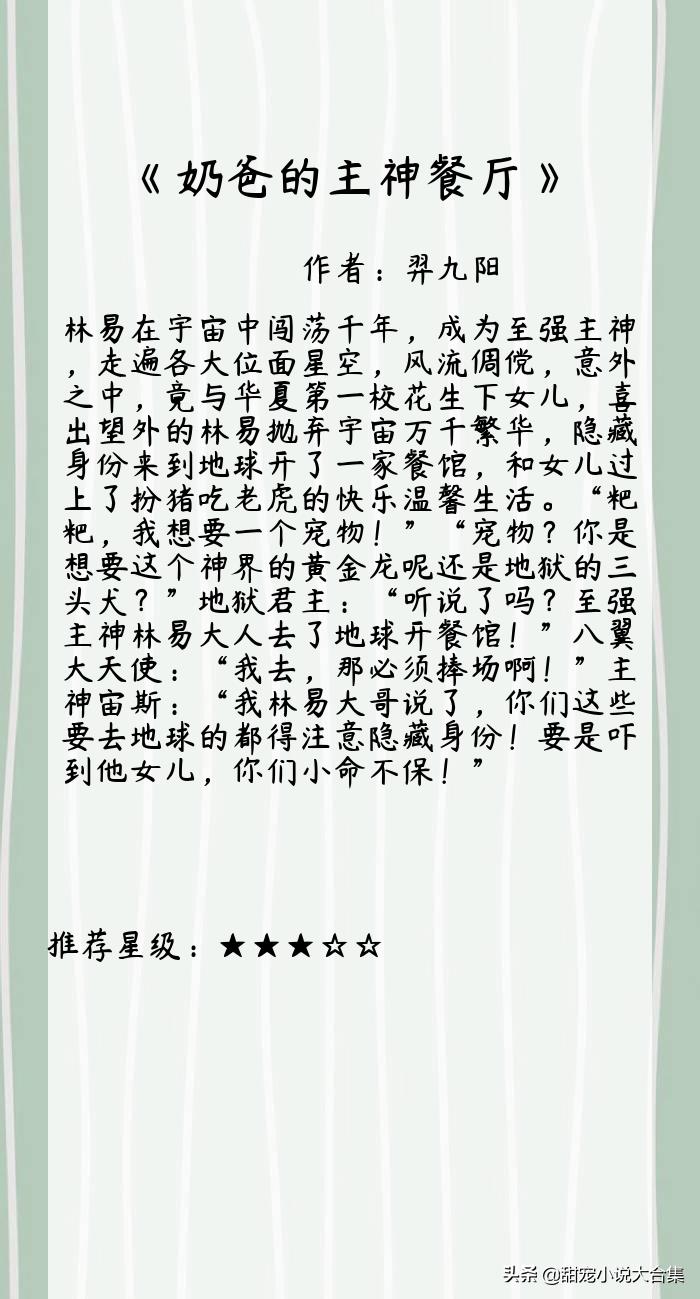 《奶爸的主神餐厅》
作者：羿九阳
林易在宇宙中闯荡千年，成为至强主神
，走遍各大位面星空，风流倜傥，意外
之中，竟与华夏第一校花生下女儿，喜
出望外的林易抛弃宇宙万千繁华，隐藏
身份来到地球开了一家餐馆，和女儿过
上了扮猪吃老虎的快乐温馨生活。“粑
粑，我想要一个宠物！”“宠物？你是
想要这个神界的黄金龙呢还是地狱的三
头犬？”地狱君主：“听说了吗？至强
主神林易大人去了地球开餐馆！”八翼
大天使：“我去，那必须捧场啊！”主
神宙斯：“我林易大哥说了，你们这些
要去地球的都得注意隐藏身份！要是吓
到他女儿，你们小命不保！”
推荐星级：★★★☆☆
头条 @甜宠小说大合集